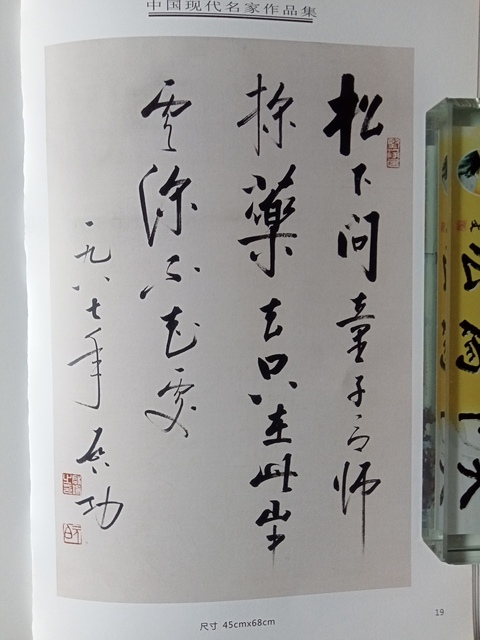 中国现代名家作品集
松下问童子言师
採藥去只在此山中
雲深不知處
一九八七年 启功
尺寸 45cmx68cm
19